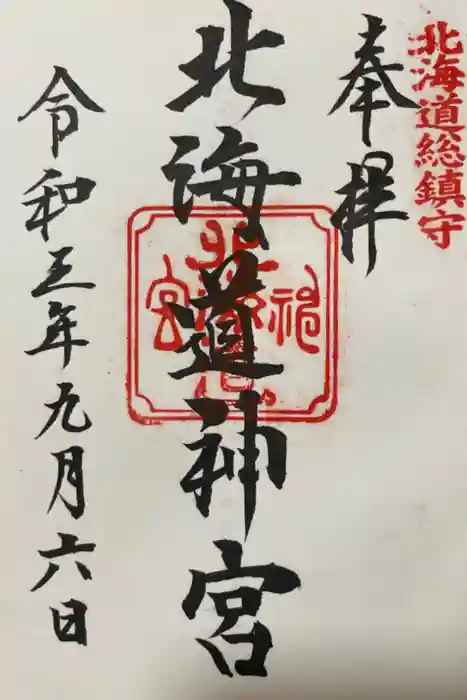 北海道総鎮守
奉拝
北海道神宮
令和三年九月六日